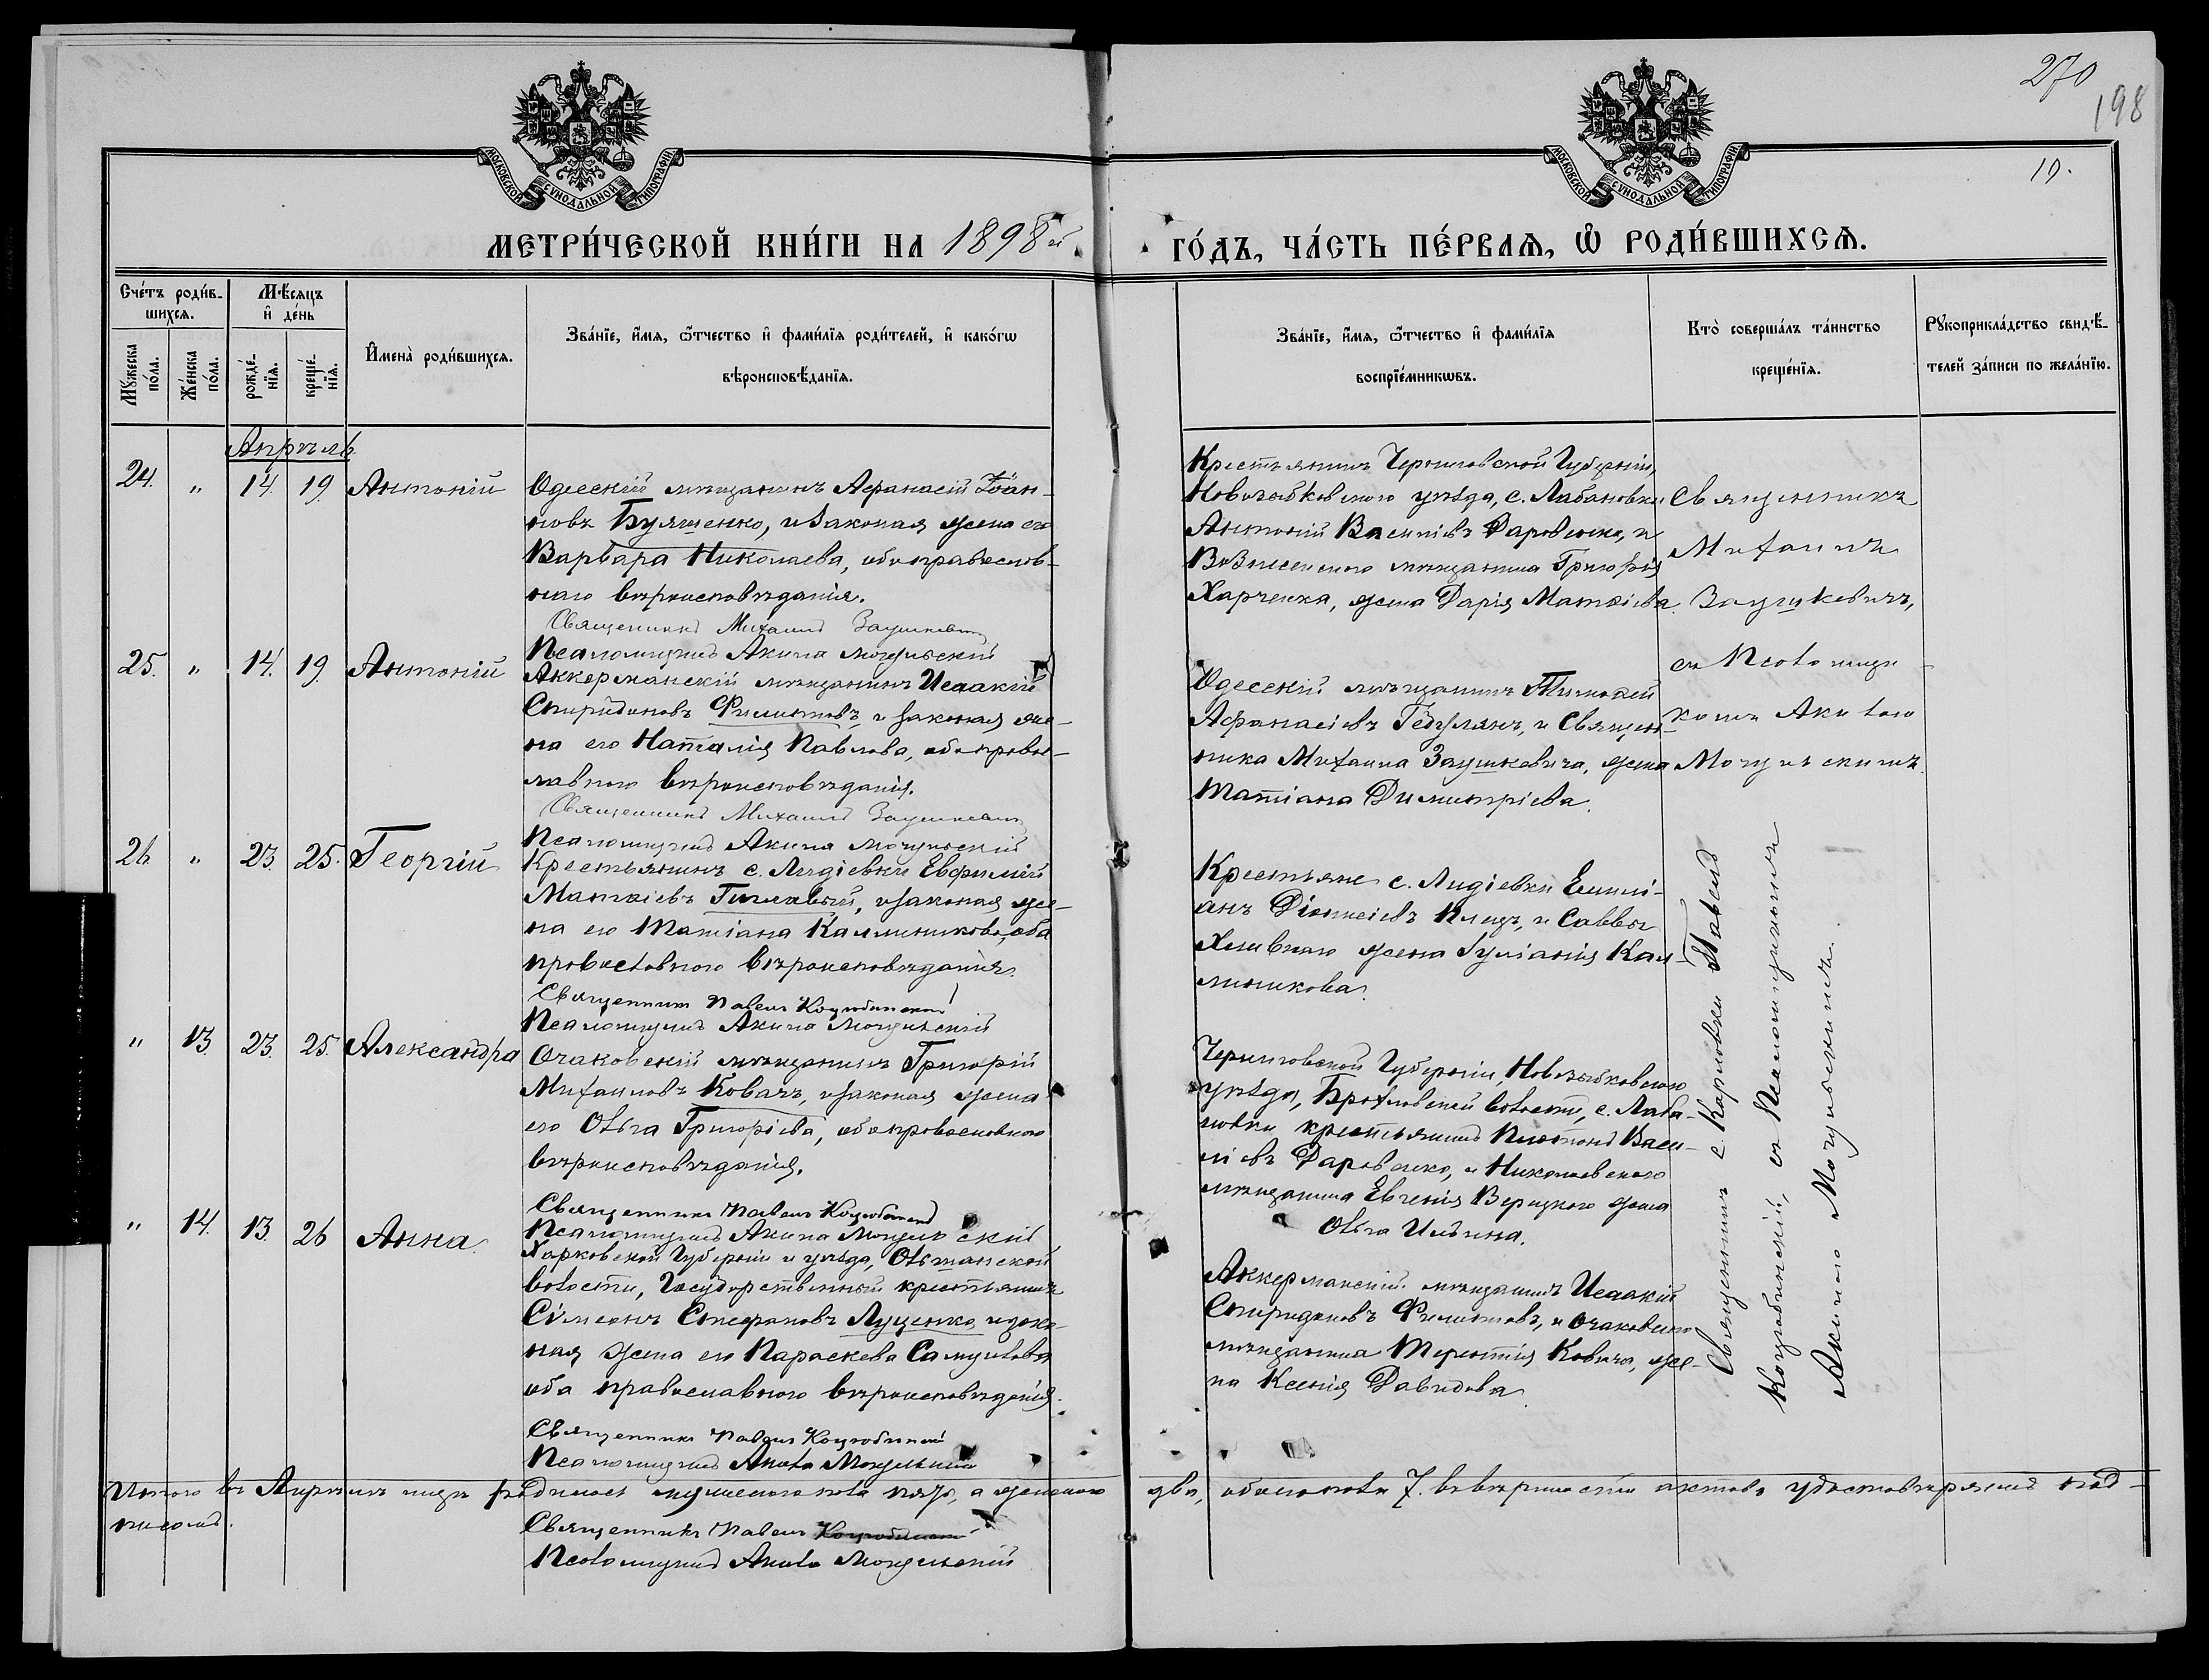 270
198
19.
МОСКОВСКОЙ СѴНОДАЛЬНОЙ ТИПОГРАФІИ
МОСКОВСКОЙ СѴНОДАЛЬНОЙ ТИПОГРАФІИ
МЕТРИ́ЧЕСКОЙ КНИ́ГИ НА 1898й
ГО́ДЪ, ЧА́СТЬ ПЕ́РВАѦ, Ѡ҆ РОДИ́ВШИХСѦ.
Сче́тъ роди́в-
шихсѧ.
Мꙋ́жеска по́ла.
Же́нска по́ла.
Мѣ́сяцъ
и҆ де́нь
рожде́-
нїѧ.
креще́-
нїѧ.
И҆мена̀ роди́вшихсѧ.
Зва́нїе, и҆́мѧ, ѻ҆́тчество и҆ фами́лїѧ роди́телей, и҆ како́гѡ
вѣроисповѣ́данїѧ.
Зва́нїе, и҆́мѧ, ѻ҆́тчество и҆ фами́лїѧ
воспрїе́мникѡвъ.
Кто̀ соверша́лъ та́инство
креще́нїѧ.
Рꙋкоприкла́дство свидѣ́-
телей за́писи по жела́нїю.
Апрѣль
24. " 14. 19. Антоній
Одесскій мѣщанинъ Афанасій Іоан-
новъ Бущенко, и законая жена его
Варвара Николаева, оба православ-
наго вѣроисповѣданія.
Священникъ Михаилъ Заушкевичъ
Псаломщикъ Акила Могульскій
Крестьянинъ Черниговской Губерніи,
Новозыбковскаго уѣзда, с. Лабановки
Антоній Васильевъ Даровенко, и
Вознесенскаго мѣщанина Григорія
Харченка, жена Дарія Матѳіева.
Священникъ
Михаилъ
Заушкевичъ,
съ Псаломщи-
комъ Акилою
Могульскимъ.
25. " 14. 19. Антоній
Аккерманскій мѣщанинъ Исаакій
Спиридоновъ Филиповъ и законая же-
на его Наталія Павлова, оба право-
славнаго вѣроисповѣданія.
Священникъ Михаилъ Заушкевичъ
Псаломщикъ Акила Могульскій
Одесскій мѣщанинъ Тимоѳей
Афанасіевъ Гедулянъ, и Священ-
ника Михаила Заушкевича, жена
Татіана Димитріева.
26. " 23. 25. Георгій
Крестьянинъ с. Лидіевки Евфимій
Матѳіевъ , и законая же-
на его Татіана Каллиникова, оба
православнаго вѣроисповѣданія.
Священникъ Павелъ Коцюбинскій
Псаломщикъ Акила Могульскій
Крестьяне с. Лидіевки Емили-
анъ Діонисіевъ Клещъ, и Саввы
жена Іуліанія Кал-
линикова.
Священникъ с. Карповки Павелъ
Коцюбинскій, съ Псаломщикомъ
Акилою Могульскимъ.
" 13. 23. 25. Александра
Очаковскій мѣщанинъ Григорій
Михаиловъ Ковачъ, и законая жена
его Ольга Григоріева, оба православнаго
вѣроисповѣданія.
Священникъ Павелъ Коцюбинскій
Псаломщикъ Акила Могульскій
Черниговской Губерніи, Новозыбковскаго
уѣзда, волости, с. Лаба-
новки крестьянинъ Платонъ Васи-
ліевъ Даровенко, и Николаевскаго
мѣщанина Евгенія Верицкаго жена
Ольга Ильина.
" 14. 13. 26 Анна.
Харьковской Губерніи и уѣзда, Ольшанской
волости, Государственный крестьянинъ
Сімеонъ Стефановъ Луценко, и зако-
ная жена его Параскева Самуилова
оба православнаго вѣроисповѣданія.
Священникъ Павелъ Коцюбинскій
Псаломщикъ Акила Могульскій
Аккерманскій мѣщанинъ Исаакій
Спиридоновъ Филиповъ, и Очаковскаго
мѣщанина Терентія Ковача, же-
на Ксенія Давидова.
Итого въ Апрѣлѣ мцѣ родилось мужескаго пола пять, а женскаго два, обоего пола 7. въ вѣрности актовъ удостовѣряемъ под-
писомъ.
Священникъ Павелъ Коцюбинскій
Псаломщикъ Акила Могульскій